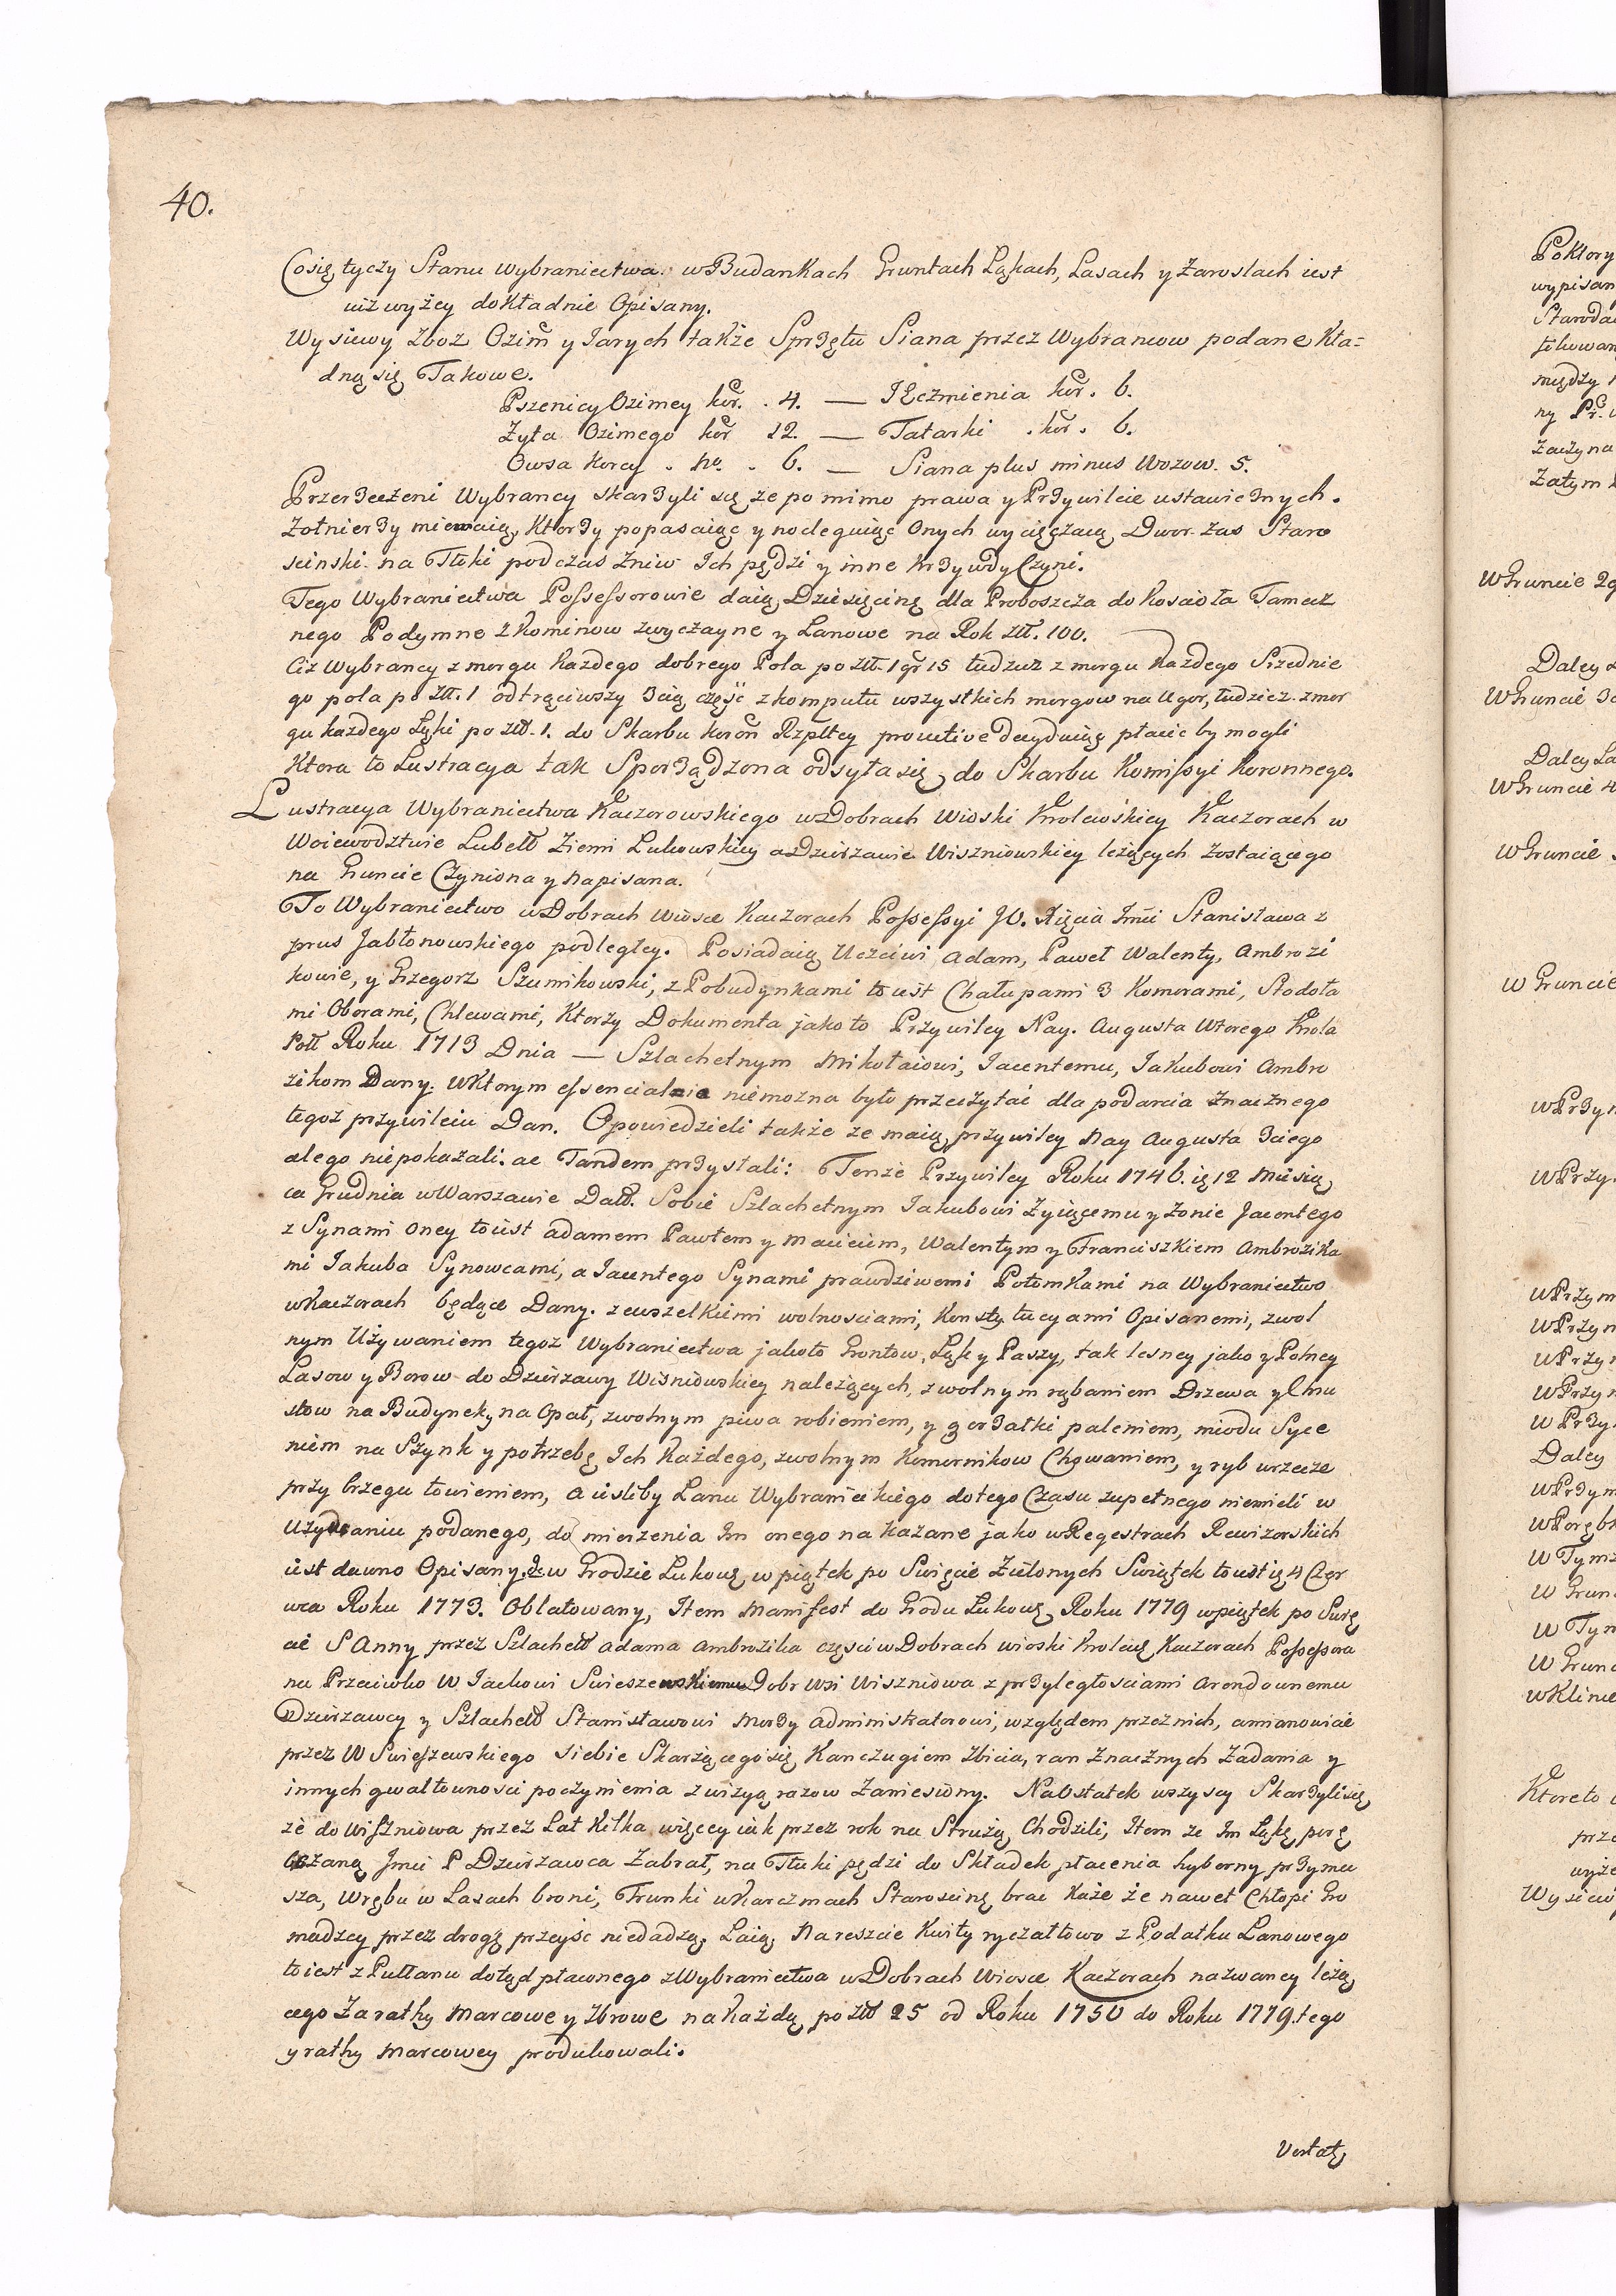 40.
Cosię tyczy Stanu Wybraniectwa w Budankach Gruntach Łąkach, Lasach y Zaroslach iest
iuż wyżey dokładnie Opisany.
Wysiewy Zboz Ozim y Jarych także Sprzętu Siana przez Wybrancow podane Kła-
dną się Takowe.
Pszenicy Ozimey kor. . 4. — Jęczmienia kor. 6.
Żyta Ozimego kor 12. — Tatarki . kor. 6.
Owsa Korcy . No. . 6. — Siana plus minus Wozow. 5.
Przerzeczeni Wybrancy skarzyli się ze po mimo prawa y Przywileie ustawicznych.
Żołnierzy miewaią, Ktorzy popasaiąc y nocleguiąc Onych wyciężaią, Dwor zas Staro
scinski na Tłuki podczas Żniw Ich pędzi y inne Krzywdy Czyni.
Tego Wybraniectwa Possessorowie daią Dziesięcinę dla Proboszcza do Kosciola Tamecz
nego Podymne z Kominow zwyczayne y Lanowe na Rok Złł. 100.
Ciż Wybrancy z morgu Każdego dobrego Pola po Złł. 1 gr 15 tudzież z morgu Każdego Srzednie
go pola po Złł. 1 odtrąciwszy 3cią część z komputu wszystkich morgow na Ugor, tudzież z mor
gu każdego Łąki po Złł. 1. do Skarbu koron Rzpltey płacić by mogli
Ktora to Lustracya tak Sporządzona odsyła się do Skarbu Komissyi Koronnego.
Lustracya Wybraniectwa Kaczorowskiego w Dobrach Wioski Krolewskiey Kaczorach w
Woiewodztwie Lubell Ziemi Lukowskiey a Dzierzawie Wiszniowskiey leżących Zostaiącego
na Gruncie Czyniona y Napisana.
To Wybraniectwo w Dobrach Wiosce Kaczorach Possessyi JO. Xięcia Jmci Stanisława z
prus Jabłonowskiego podległey. Posiadaią Uczciwi Adam, Paweł Walenty, Ambrozi
kowie, y Grzegorz Szumikowski, z Pobudynkami to iest Chałupami 3 Komorami, Stodoła
mi Oborami, Chlewami, Ktorzy Dokumenta jako to Przywiley Nay. Augusta Wtorego Krola
Poll Roku 1713 Dnia — Szlachetnym Mikołaiowi, Jacentemu, Jakubowi Ambro
zikom Dany. W Ktorym essencialnie niemozna było przeczytać dla podarcia Znacznego
tegoż przywileiu Dan. Opowiedzieli także ze maią przywiley Nay Augusta 3ciego
ale go niepokazali. ac Tandem przystali: Tenże Przywiley Roku 1746. ię 12 Miesią
ca Grudnia w Warszawie Datt. Sobie Szlachetnym Jakubowi Żyiącemu y Żonie Jacentego
z Synami Oney to iest Adamem Pawłem y Macieiem, Walentym y Franciszkiem Ambrozika
mi Jakuba Synowcami, a Jacentego Synami prawdziwemi Potomkami na Wybraniectwo
w Kaczorach będące Dany. z wszelkiemi wolnosciami, Konstytucyami Opisanemi, z wol
nym Używaniem tegoz Wybraniectwa jako to Grontow, Łąk y Paszy, tak lesney jako y Polney
Lasow y Borow do Dzierzawy Wisniowskiey należących, z wolnym rąbaniem Drzewa y Chru
stow na Budynek, na Opał, z wolnym piwa robieniem, y gorzałki paleniem, miodu Syce
niem na Szynk y potrzebę Ich Każdego, z wolnym Komornikow Chowaniem, y ryb w rzece
przy brzegu łowieniem, a iesliby Lanu Wybranieckiego do tego Czasu zupełnego niemieli w
używaniu podanego, do mierzenia Im onego nakazane jako w Regestrach Rewizorskich
iest dawno Opisany. & w Grodzie Łukow: w piątek po Święcie Zielonych Świątek to iest ię 4 Czer
wca Roku 1773. Oblatowany, Item Manifest do Grodu Łukow: Roku 1779 w piątek po Swię
cie S Anny przez Szlachett Adama Ambrozika części w Dobrach wioski Krolew: Kaczorach Possessora
na Przeciwko W Jackowi Swieszewskiemu Dobr Wsi Wiszniowa z przyległosciami Arendownemu
Dzierzawcy y Szlachett Stanisławowi Mordy Administratorowi, względem przez nich, a mianowicie
przez W Swieszewskiego siebie Skarżącego się Kanczugiem Zbicia, ran Znacznych Zadania y
innych gwałtownosci poczynienia z wizyą razow Zaniesiony. Na Ostatek wszyscy Skarzyli się
że do Wiszniowa przez Lat Kilka więcey iak przez rok na Strużą Chodzili, Item ze Im Łąkę
Jmć P Dzierzawca Zabrał, na Tłuki pędzi do Składek płacenia hyberny przymu
sza, Wrębu w Lasach broni, Trunki w Karczmach Staroscinę brac Każe że nawet Chłopi Gro
madzcy przez drogę przeyśc niedadzą Łaią Nareszcie Kwity ryczałtowo z Podatku Lanowego
to iest z Pułłanu dotąd płaconego z Wybraniectwa w Dobrach Wiosce Kaczorach nazwaney leżą
cego Za rathy Marcowe y Wbrowe na każdą po Złł 25 od Roku 1750 do Roku 1779. tego
y rathy Marcowey produkowali.